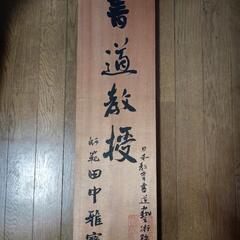 日本教育書道藝術院
書道教授
師範 田中雅